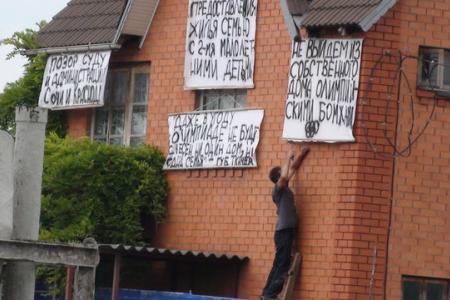 ПОЗОР СУДУ
И АДМИНИСТРАЦИИ
СОЧИ И КРАСНОД
ПРЕДОСТАВЛЕНИЯ
ЖИЛЬЯ СЕМЬЮ
С 2-МЯ МАЛОЛЕТ
НИМИ ДЕТЬМИ
ДАЖЕ В УГОДУ
ОЛИМПИАДЕ НЕ БУДЕТ
НИ ОДИН ДОМ И
ОДНА СЕМЬЯ
НЕ ВЫЙДЕМ ИЗ
СОБСТВЕННОГО
ДОМА ОЛИМПИЙ-
СКИМИ БОМЖА
МИ